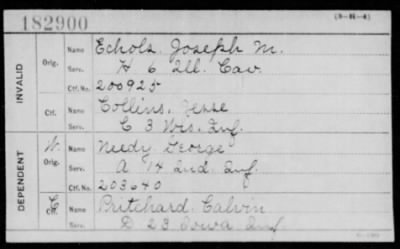 182900
(3-H-4)
INVALID
Orig. Name Echols, Joseph M.
Serv. H 6 Ill. Cav.
Ctf. No. 200925
Ctf. Name Collins, Jesse
Serv. C 3 Wis. Inf.
DEPENDENT
W. Orig. Name Needy George
Serv. A 14 Ind. Inf.
Ctf. No. 203640
C Ctf. Name Pritchard Calvin
Serv. D 23 Iowa Inf